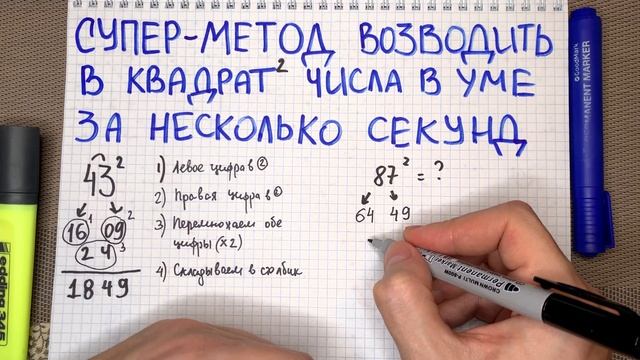 СУПЕР-МЕТОД ВОЗВОДИТЬ
В КВАДРАТ² ЧИСЛА В УМЕ
ЗА НЕСКОЛЬКО СЕКУНД
43²
16¹ 09²
2 4³
1849
1) Левое цифра в ②
2) Правая цифра в ②
3) Перемножаем обе
цифры (x2)
4) Складываем в столбик
87² = ?
64 49
GoodMark
PERMANENT MARKER
edding 345
CROWN MULTI P-800W
Permanent Marker